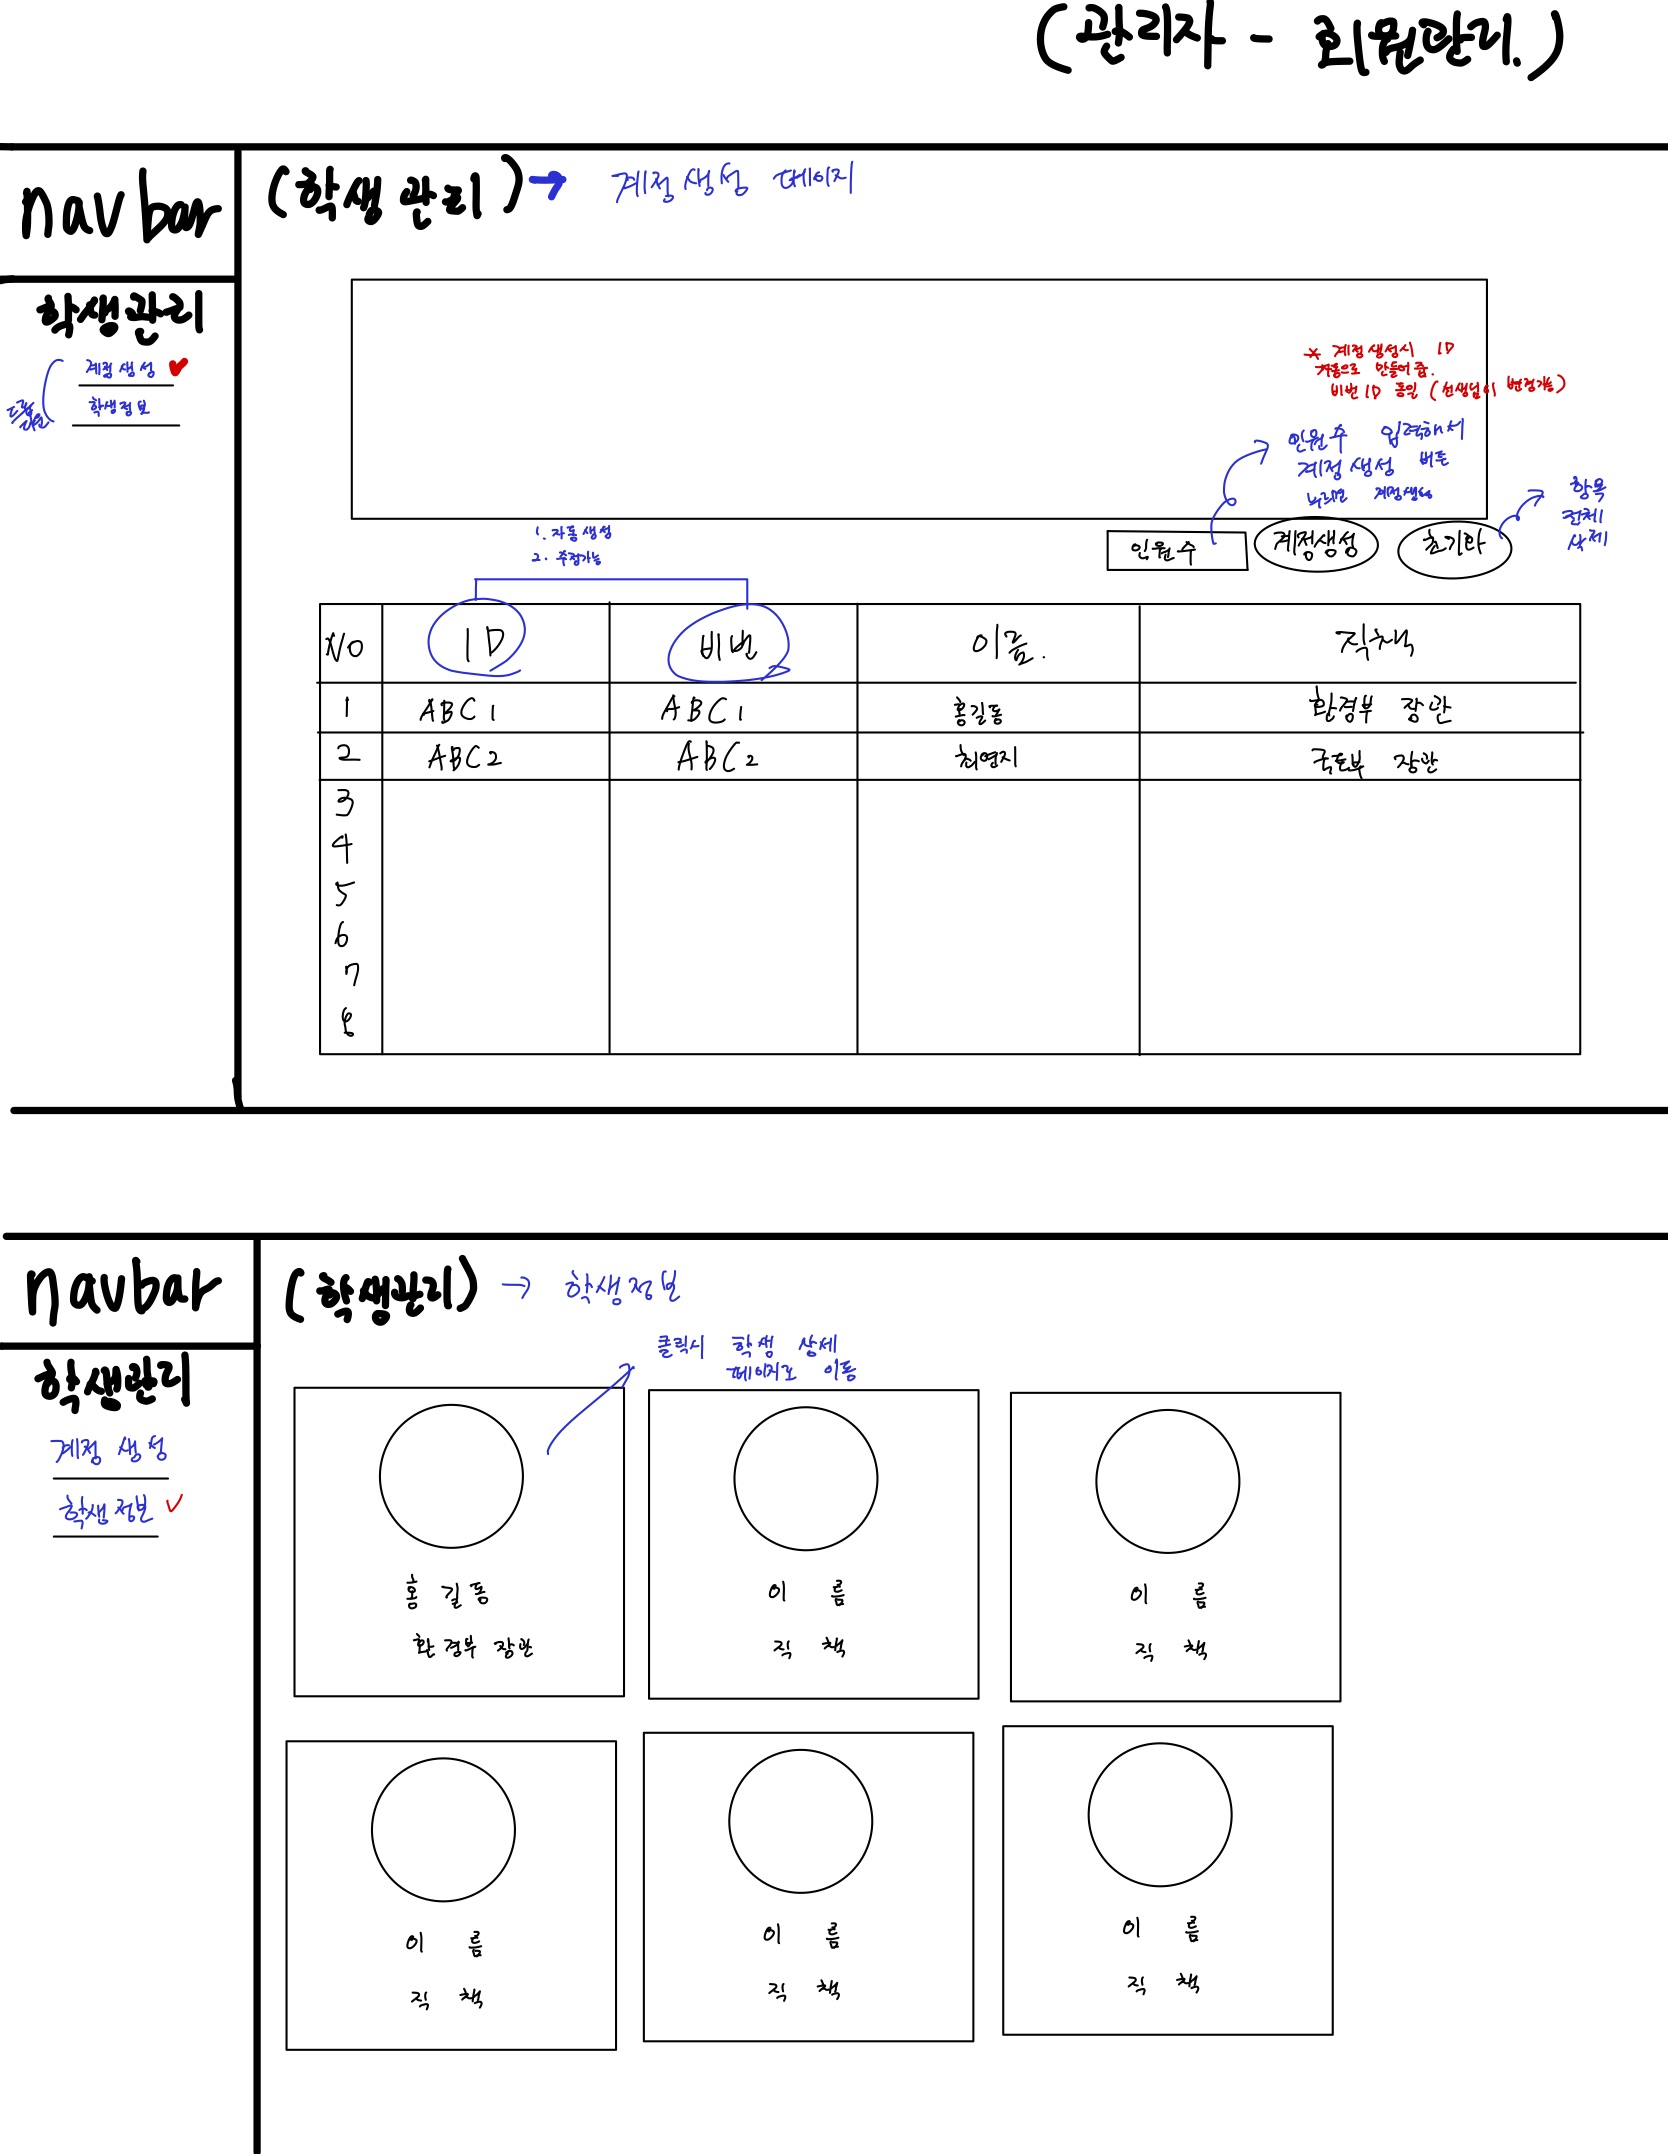 (관리자 - 회원관리.)
navbar
(학생 관리) → 계정생성 페이지
학생관리
계정생성
학생정보
드롭
다운
* 계정생성시 ID
자동으로 만들어 줌.
비번 ID 동일 (선생님이 변경가능)
인원수 입력해서
계정생성 버튼
누르면 계정생성
항목
전체
삭제
1. 자동생성
2. 수정가능
인원수
계정생성
초기화
No ID 비번 이름. 직책
1 ABC1 ABC1 홍길동 환경부 장관
2 ABC2 ABC2 최영지 국토부 장관
3
4
5
6
7
8
navbar
(학생관리) → 학생정보
학생관리
계정 생성
학생정보
클릭시 학생 상세
페이지로 이동
홍길동
환경부 장관
이름
직책
이름
직책
이름
직책
이름
직책
이름
직책